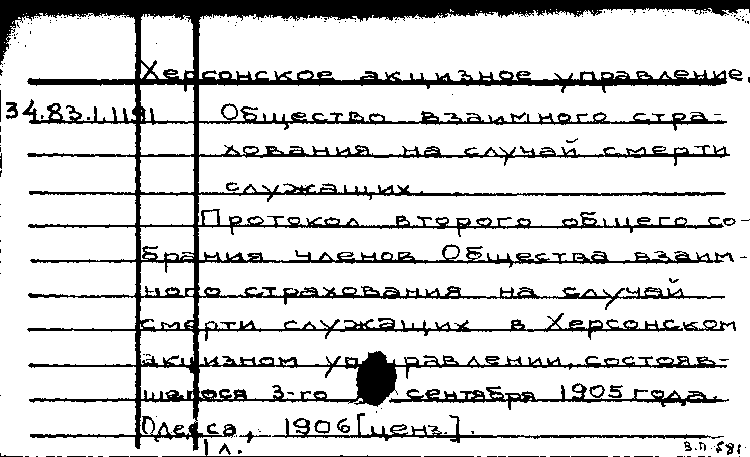 Херсонское акцизное управление.
34.83.1.1191 Общество взаимного стра-
хования на случай смерти
служащих.
Протокол второго общего со-
брания членов Общества взаим-
ного страхования на случай
смерти служащих в Херсонском
акцизном управлении, состояв-
шегося 3-го сентября 1905 года.
Одесса, 1906 [ценз.].
1 л.
З.П. 581